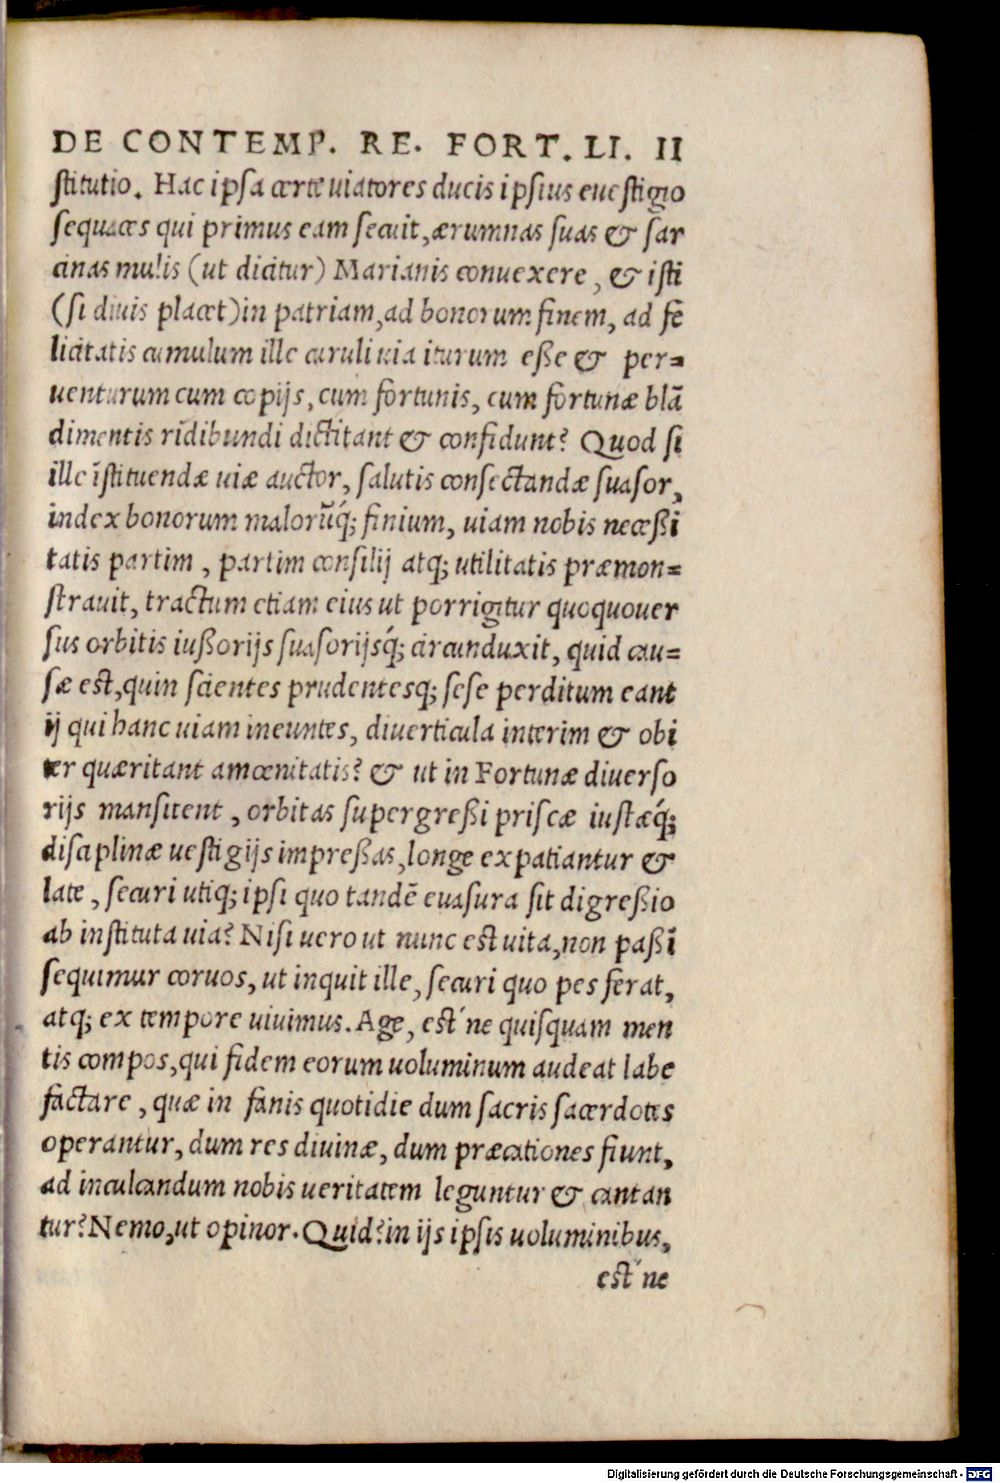 DE CONTEMP. RE. FORT. LI. II
stitutio. Hac ipsa certe uiatores ducis ipsius euestigio
sequaces qui primus eam secuit, ærumnas suas & sar
cinas mulis (ut dicitur) Marianis conuexere, & isti
(si diuis placet) in patriam, ad bonorum finem, ad fē
licitatis cumulum ille curuli uia iturum esse & per=
uenturum cum copijs, cum fortunis, cum fortunæ blā
dimentis rīdibundi dictitant & confidunt? Quod si
ille īstituendæ uiæ auctor, salutis consectandæ suasor,
index bonorum malorūq́; finium, uiam nobis necessi
tatis partim, partim consilij atq; utilitatis præmon=
strauit, tractum etiam eius ut porrigitur quoquouer
sus orbitis iussorijs suasorijsq́; circunduxit, quid cau=
sæ est, quin scientes prudentesq; sese perditum eant
ij qui hanc uiam ineuntes, diuerticula interim & obi
ter quæritant amœnitatis? & ut in Fortunæ diuerso
rijs mansitent, orbitas supergressi priscæ iustæq́;
disciplinæ uestigijs impressas, longe expatiantur &
late, securi utiq; ipsi quo tandē euasura sit digressio
ab instituta uia? Nisi uero ut nunc est uita, non passī
sequimur coruos, ut inquit ille, securi quo pes ferat,
atq; ex tempore uiuimus. Age, est´ne quisquam men
tis compos, qui fidem eorum uoluminum audeat labe
factare, quæ in fanis quotidie dum sacris sacerdotes
operantur, dum res diuinæ, dum præcationes fiunt,
ad inculcandum nobis ueritatem leguntur & cantan
tur? Nemo, ut opinor. Quid? in ijs ipsis uoluminibus,
est´ne
Digitalisierung gefördert durch die Deutsche Forschungsgemeinschaft - DFG